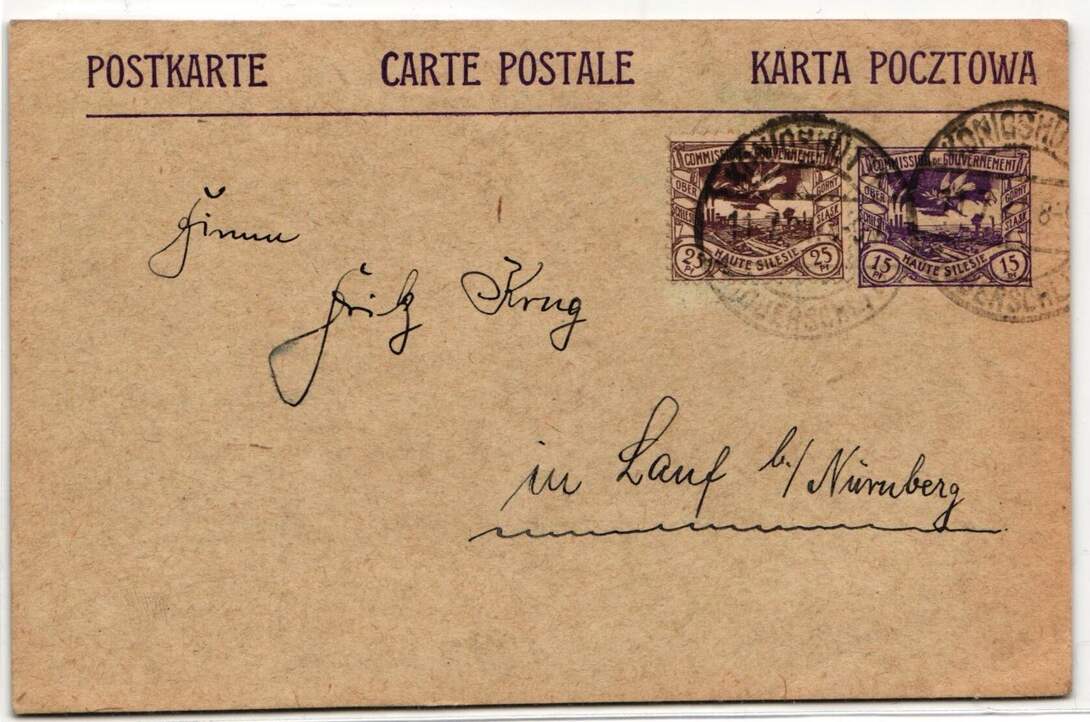 POSTKARTE CARTE POSTALE KARTA POCZTOWA
COMMISSION DE GOUVERNEMENT
OBER SCHLESIEN GORNY ŚLĄSK
HAUTE SILESIE
25 Pf 25 Pf
COMMISSION DE GOUVERNEMENT
OBER SCHLESIEN GORNY ŚLĄSK
HAUTE SILESIE
15 Pf 15 Pf
KÖNIGSHÜT
KÖNIGSHÜT
Firma
Fritz Krug
in Lauf b./Nürnberg